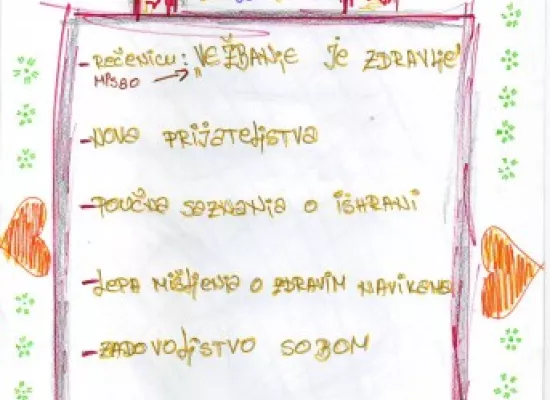 - REČENICU: "VEŽBANJE JE ZDRAVLJE"
- NOVA PRIJATELJSTVA
- POUČNA SAZNANJA O ISHRANI
- LEPA MIŠLJENJA O ZDRAVIM NAVIKAMA
- ZADOVOLJSTVO SOBOM